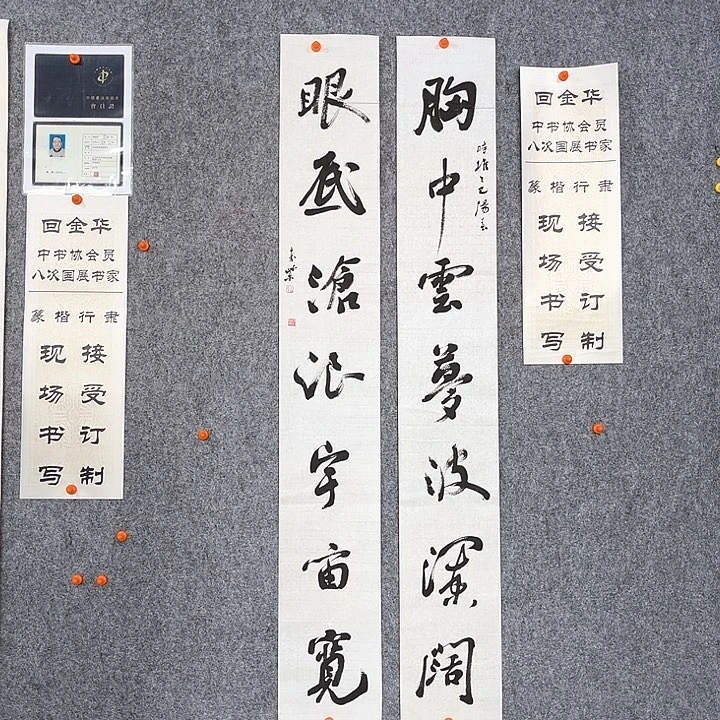 中国书法家协会
會員證
回金华
中书协会员
八次国展书家
篆楷行隶
现场书写
接受订制
胸中雲夢波澜阔
眼底滄浪宇宙寬
回金华
中书协会员
八次国展书家
篆楷行隶
现场书写
接受订制